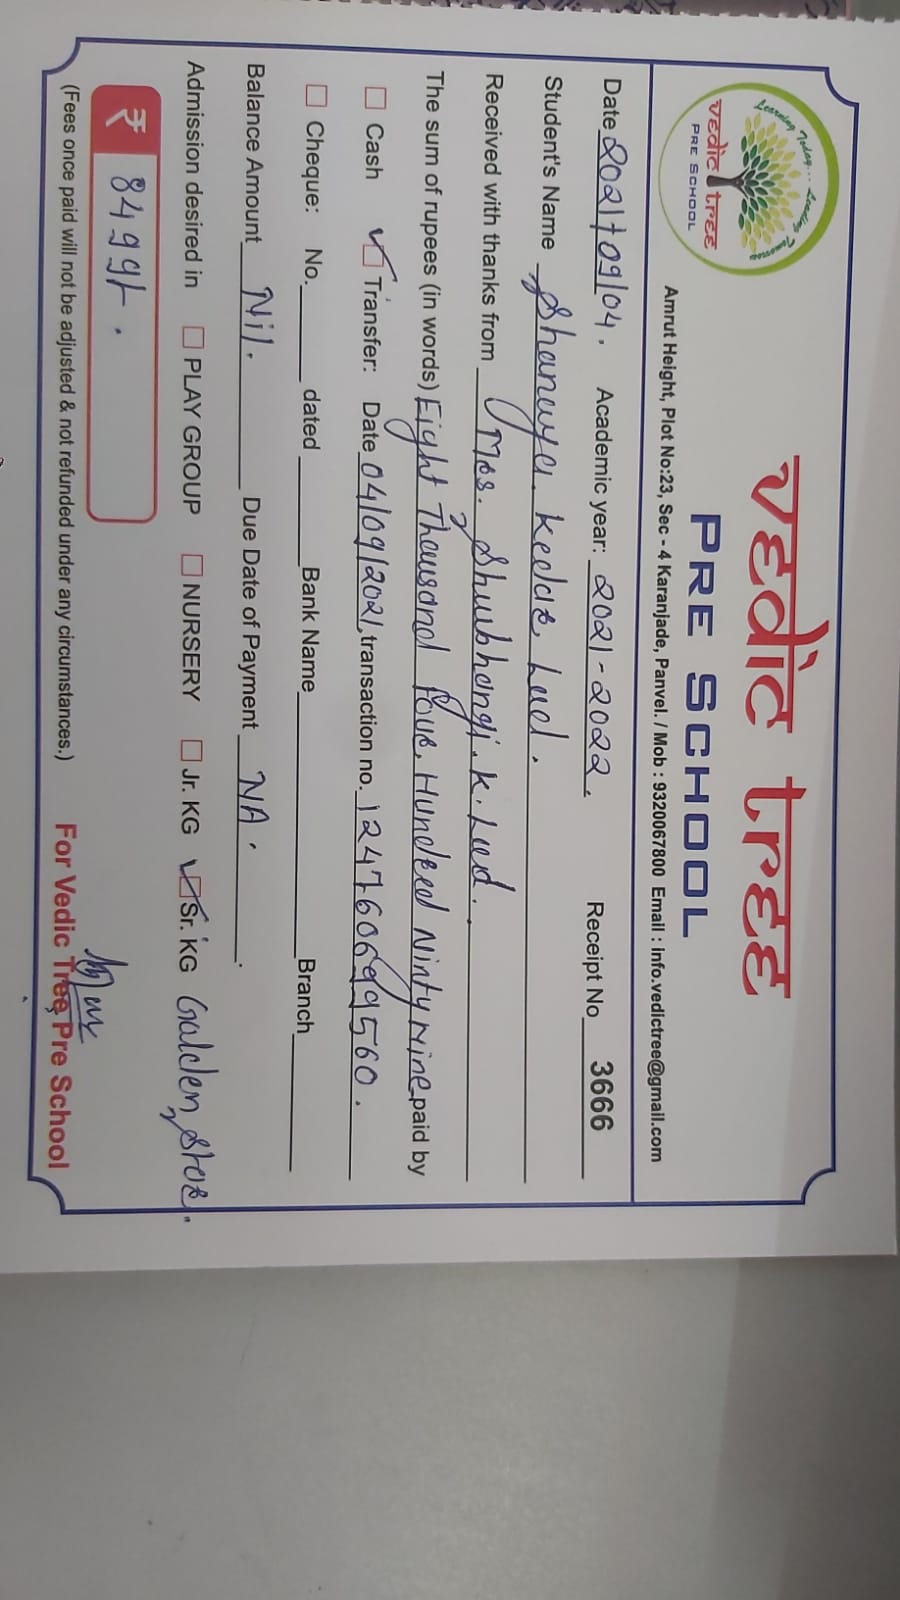 Learning Today... Leading Tomorrow
vedic tree
PRE SCHOOL
vedic tree
PRE SCHOOL
Amrut Height, Plot No:23, Sec - 4 Karanjade, Panvel. / Mob : 9320067800 Email : info.vedictree@gmail.com
Date 2021/09/04. Academic year: 2021-2022. Receipt No 3666
Student's Name Shanaya. Kedar. Lad.
Received with thanks from Mrs. Shubhangi. K. Lad.
The sum of rupees (in words) Eight Thousand Four Hundred Ninty Nine paid by
Cash Transfer: Date 04/09/2021, transaction no. 124760699560.
Cheque: No. dated Bank Name Branch
Balance Amount Nil. Due Date of Payment NA.
Admission desired in PLAY GROUP NURSERY Jr. KG Sr. KG Galden Star.
₹ 8499/- .
(Fees once paid will not be adjusted & not refunded under any circumstances.) For Vedic Tree Pre School